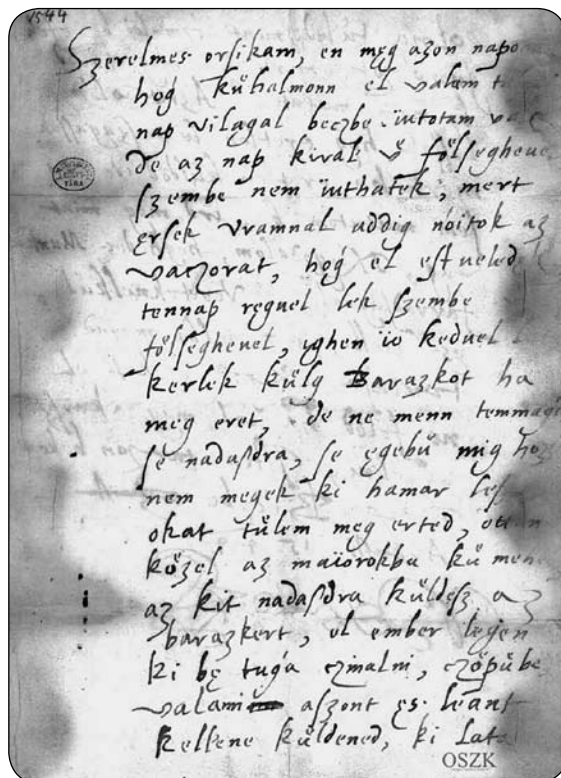 1544
Szerelmes orsikam, en meg azon napo
hoǵ kühalmonn el valam t
nap vilagal beczbe iutotam va
de az nap kiral ö fölsegheve
szembe nem iuthatek, mert
ersek vramnal addig nöitok az
vaczorat, hoǵ el estueled
tennap reguel lek szembe
fölseghevel, ighen io keduel
kerlek külǵ Barazkot ha
meg eret, de ne menn temmag
se nadasdra, se egebü mig ho
nem megek ki hamar les
okat tülem meg erted,
közel az maiorokba kü men
az kit nadasdra küldesz az
barazkert, ol ember legen
ki be tuǵa czinalni, czöpübe
valami aszont es leant
kellene küldened, ki lata
OSZK